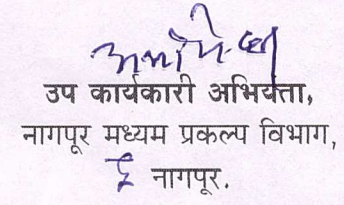 उप कार्यकारी अभियंता,
नागपूर मध्यम प्रकल्प विभाग,
नागपूर.